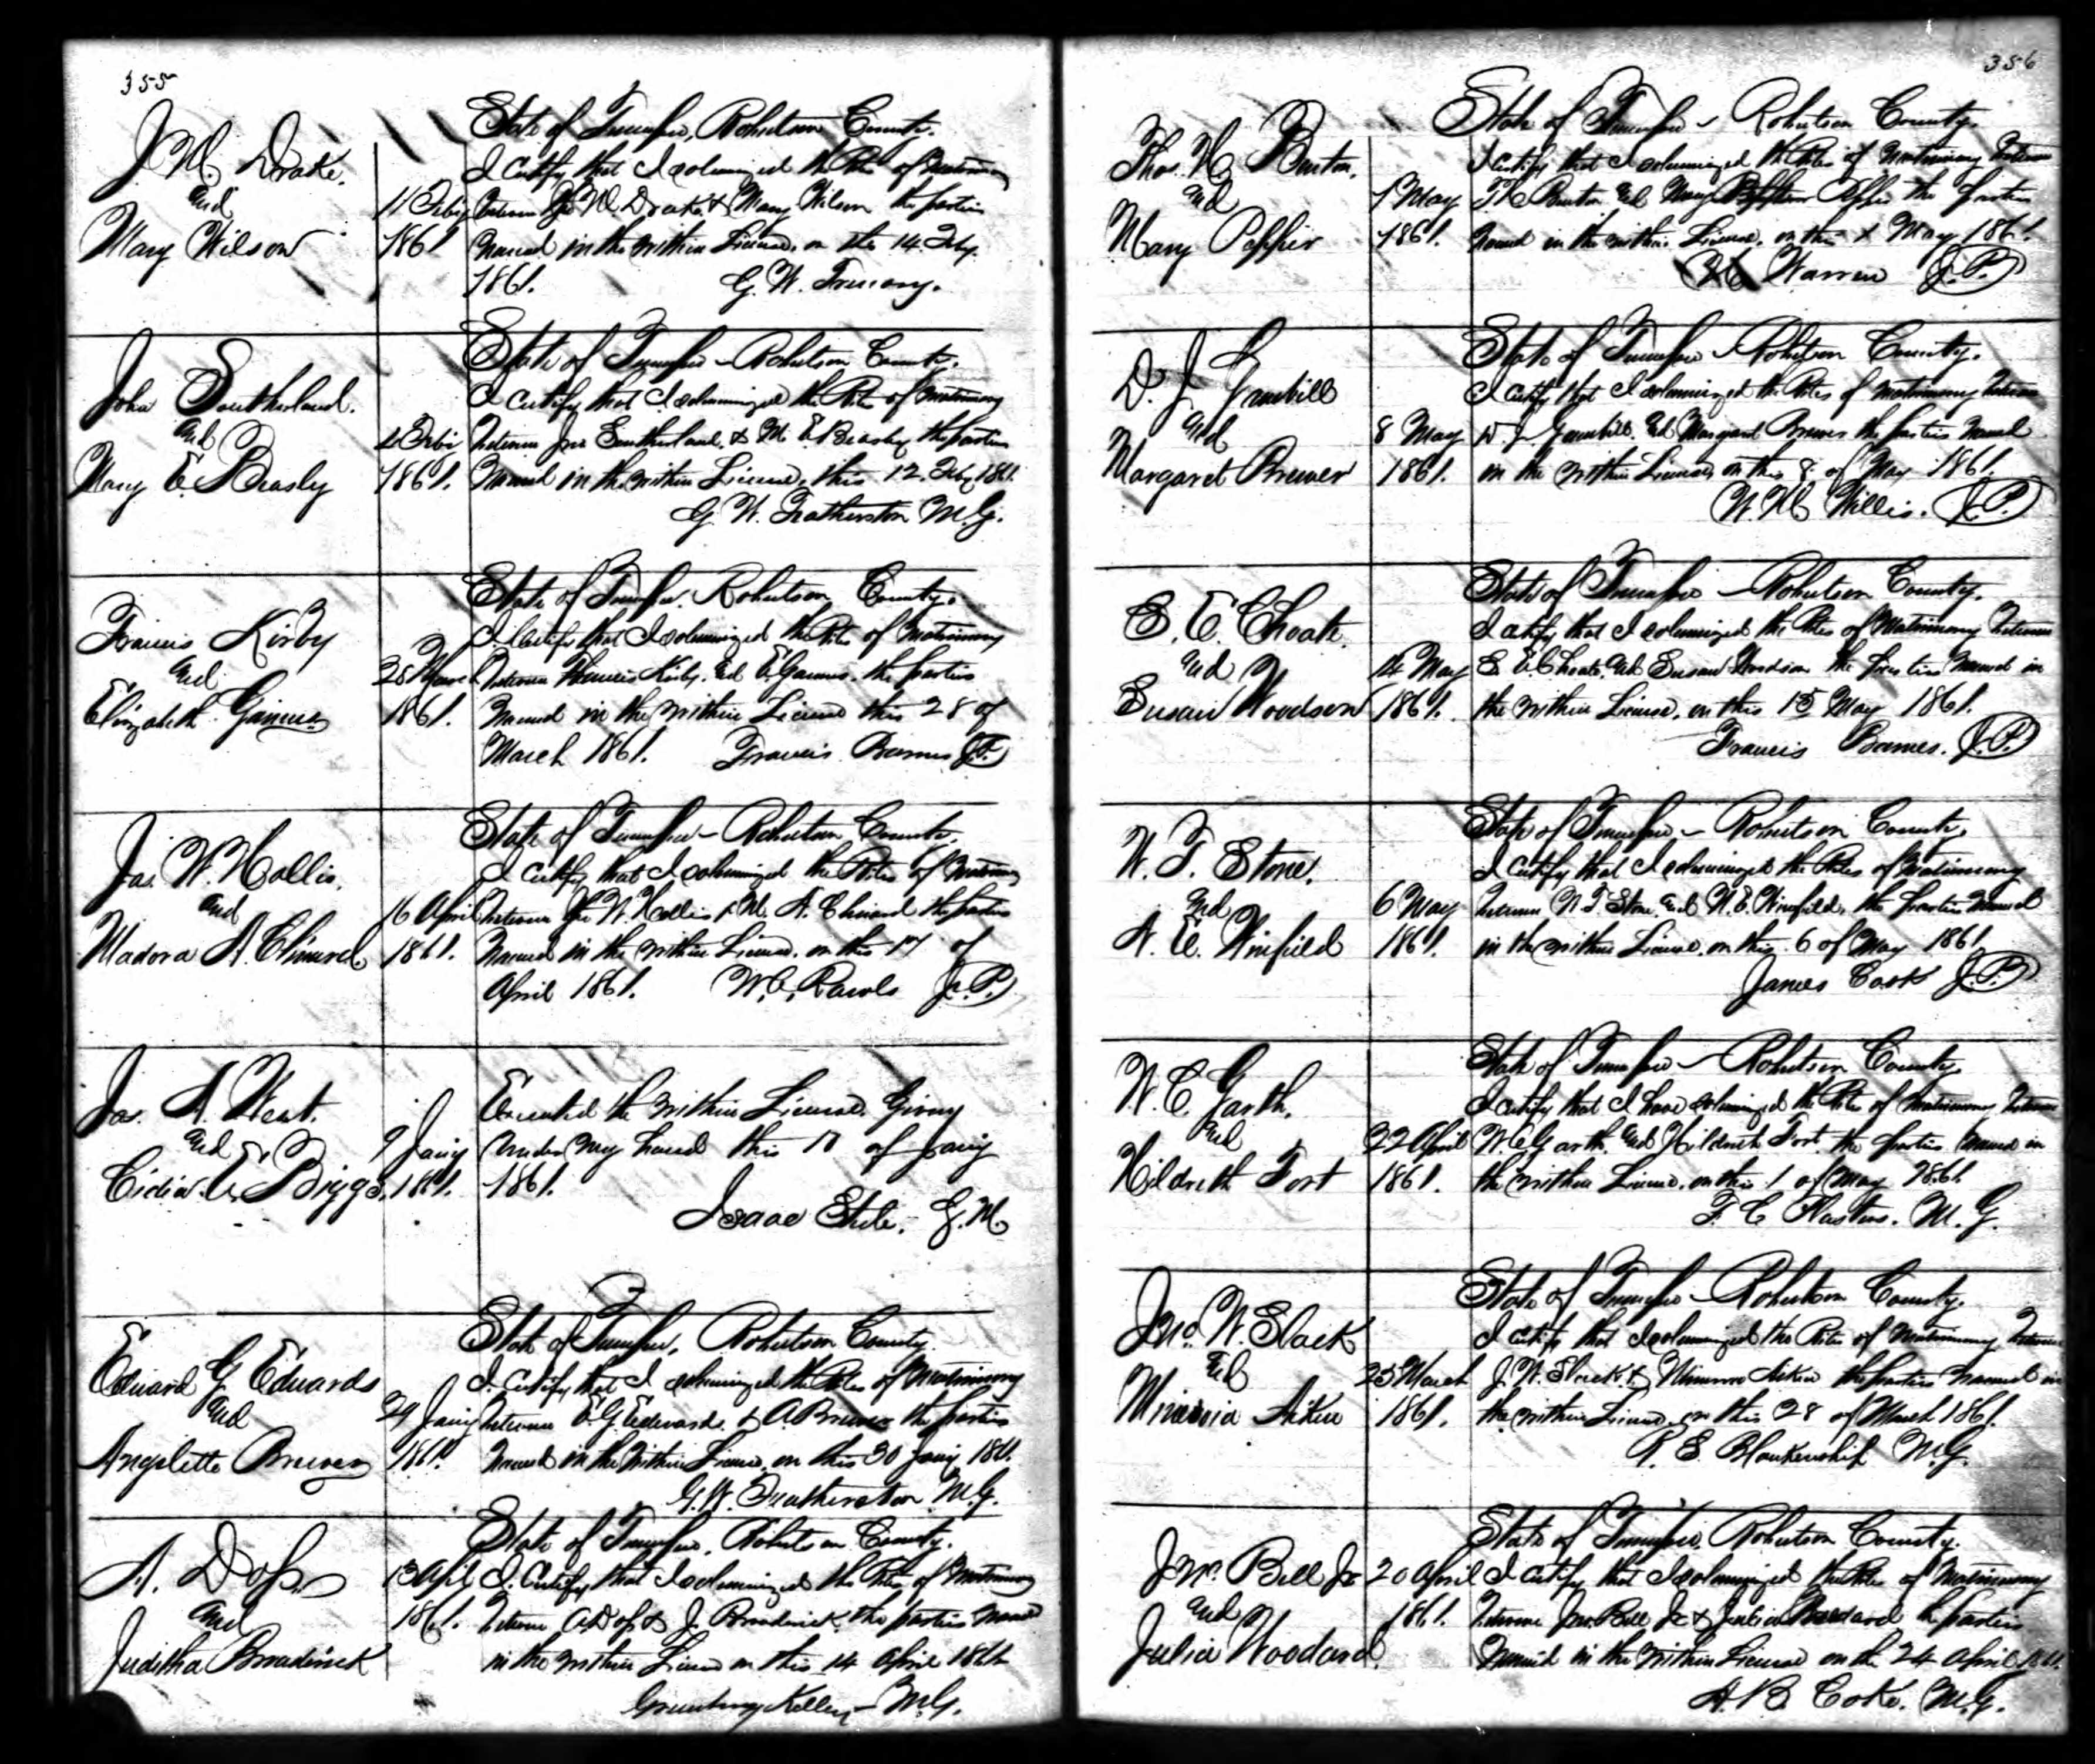 355
J. M. Drake.
and
Mary Wilson
11 Feby
1861
State of Tennessee, Robertson County.
I Certify that I solemnized the Rites of Matrimony
between J. M. Drake & Mary Wilson the parties
named in the within License, on the 14. Feby.
1861.
G. W.
John Southerland.
and
Mary E. Beasly
Feby
1861.
State of Tennessee - Robertson County.
I certify that I solemnized the Rites of Matrimony
between Jno Southerland, & M. E. Beasly the parties
Named in the within License, this 12. Feby 1861.
G. W. Featherston M.G.
Francis Kirby
and
Elizabeth
28 March
1861.
State of Tennessee. Robertson County.
I Certify that I solemnized the Rites of Matrimony
between Francis Kirby. and E. the parties
Named in the within License this 28 of
March 1861. Francis Barnes J.P.
Jas. W. Hollis.
and
Madora A.
16 April
1861.
State of Tennessee - Robertson County.
I certify that I solemnized the Rites of Matrimony
between W. Hollis & M. A. the parties
Named in the within License, on this 17 of
April 1861. W. C. Rawls J.P.
Jas. A. West.
and
E. Biggs.
9 Jany
1861.
Executed the within License. Given
under my hand this of Jany
1861.
Isaac Steele. G.M
Edward G Edwards
and
Angelette Brewer
29 Jany
1861.
State of Tennessee, Robertson County.
I Certify that I solemnized the Rites of Matrimony
between E. G. Edwards. & A. Brewer the parties
Named in the within License, on this 30 Jany 1861.
G. W. Featherston M.G.
A. Doss
and
Juditha Broaderick
13 April
1861.
State of Tennessee, Robertson County.
I Certify that I solemnized the Rites of Matrimony
between A Doss & J. Broderick the parties Named
in the within License on this 14 April 1861
Greenberry Kelley - M.G.
356
Thos. H. Benton.
and
Mary Pepper
1 May
1861.
State of Tennessee - Robertson County.
I certify that I solemnized the Rites of Matrimony between
T H Benton and Mary Pepper the parties
Named in the within License, on this 1 May 1861.
Warren J.P.
D. J. Gambill
and
Margaret Brewer
8 May
1861.
State of Tennessee - Robertson County.
I certify that I solemnized the Rites of Matrimony between
D. J. Gambill. and Margaret Brewer the parties Named
in the within License, on this 8 of May 1861.
W. H. Willis. J.P.
S. E. Choate.
and
Susan Woodson
14 May
1861.
State of Tennessee - Robertson County.
I certify that I solemnized the Rites of Matrimony between
S E Choate. and Susan Woodson the parties Named in
the within License, on this 15 May 1861.
Francis Barnes. J.P.
W. T. Stone.
and
N. E. Winfield
6 May
1861.
State of Tennessee - Robertson County.
I certify that I solemnized the Rites of Matrimony
between W. T. Stone and N. E. Winfield, the parties Named
in the within License on this 6 of May 1861.
James Cook J.P.
W. C. Garth.
and
Hildreth Fort
22 April
1861.
State of Tennessee - Robertson County.
I certify that I have solemnized the Rites of Matrimony between
W. C. Garth. and Hildreth Fort. the parties Named in
the within License, on this 1 of May 1861.
T. C M. G.
Jno. W. Slack
and
Minervia Aiken
25 March
1861.
State of Tennessee - Robertson County.
I certify that I solemnized the Rites of Matrimony between
J. W. Slack & Minerva Aiken the parties Named in
the within License, on this 28 of March 1861.
R. E. Blankenship M.G.
Jno. Bell Jr
and
Julia Woodard.
20 April
1861.
State of Tennessee, Robertson County.
I certify that I solemnized the Rites of Matrimony
between Jno. Bell Jr & Julia Woodard the parties
Named in the within License on the 24 April 1861.
A. B. Coke. M.G.